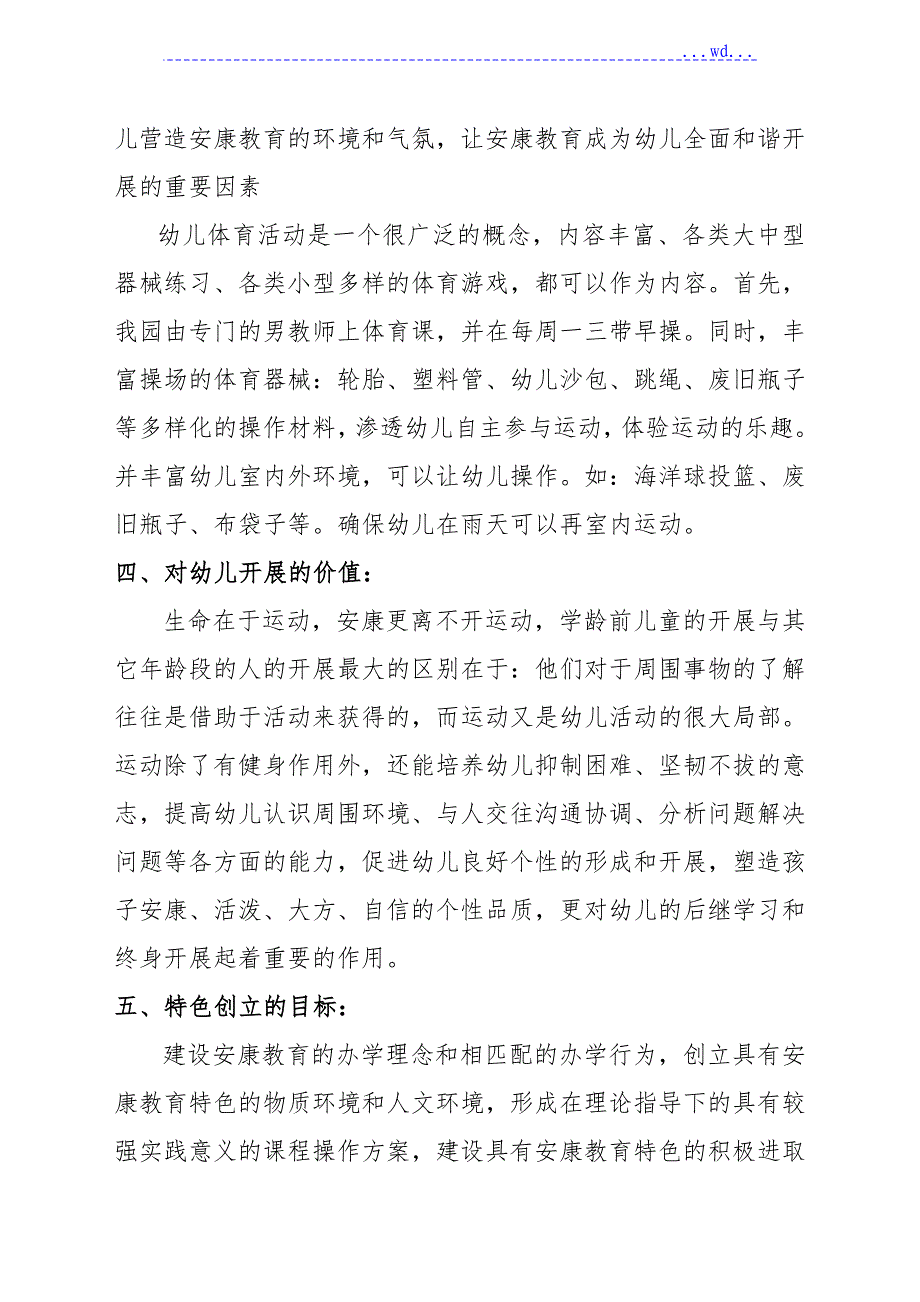 ...wd...
儿营造安康教育的环境和气氛，让安康教育成为幼儿全面和谐开
展的重要因素
幼儿体育活动是一个很广泛的概念，内容丰富、各类大中型
器械练习、各类小型多样的体育游戏，都可以作为内容。首先，
我园由专门的男教师上体育课，并在每周一三带早操。同时，丰
富操场的体育器械：轮胎、塑料管、幼儿沙包、跳绳、废旧瓶子
等多样化的操作材料，渗透幼儿自主参与运动，体验运动的乐趣。
并丰富幼儿室内外环境，可以让幼儿操作。如：海洋球投篮、废
旧瓶子、布袋子等。确保幼儿在雨天可以再室内运动。
四、对幼儿开展的价值：
生命在于运动，安康更离不开运动，学龄前儿童的开展与其
它年龄段的人的开展最大的区别在于：他们对于周围事物的了解
往往是借助于活动来获得的，而运动又是幼儿活动的很大局部。
运动除了有健身作用外，还能培养幼儿抑制困难、坚韧不拔的意
志，提高幼儿认识周围环境、与人交往沟通协调、分析问题解决
问题等各方面的能力，促进幼儿良好个性的形成和开展，塑造孩
子安康、活泼、大方、自信的个性品质，更对幼儿的后继学习和
终身开展起着重要的作用。
五、特色创立的目标：
建设安康教育的办学理念和相匹配的办学行为，创立具有安
康教育特色的物质环境和人文环境，形成在理论指导下的具有较
强实践意义的课程操作方案，建设具有安康教育特色的积极进取